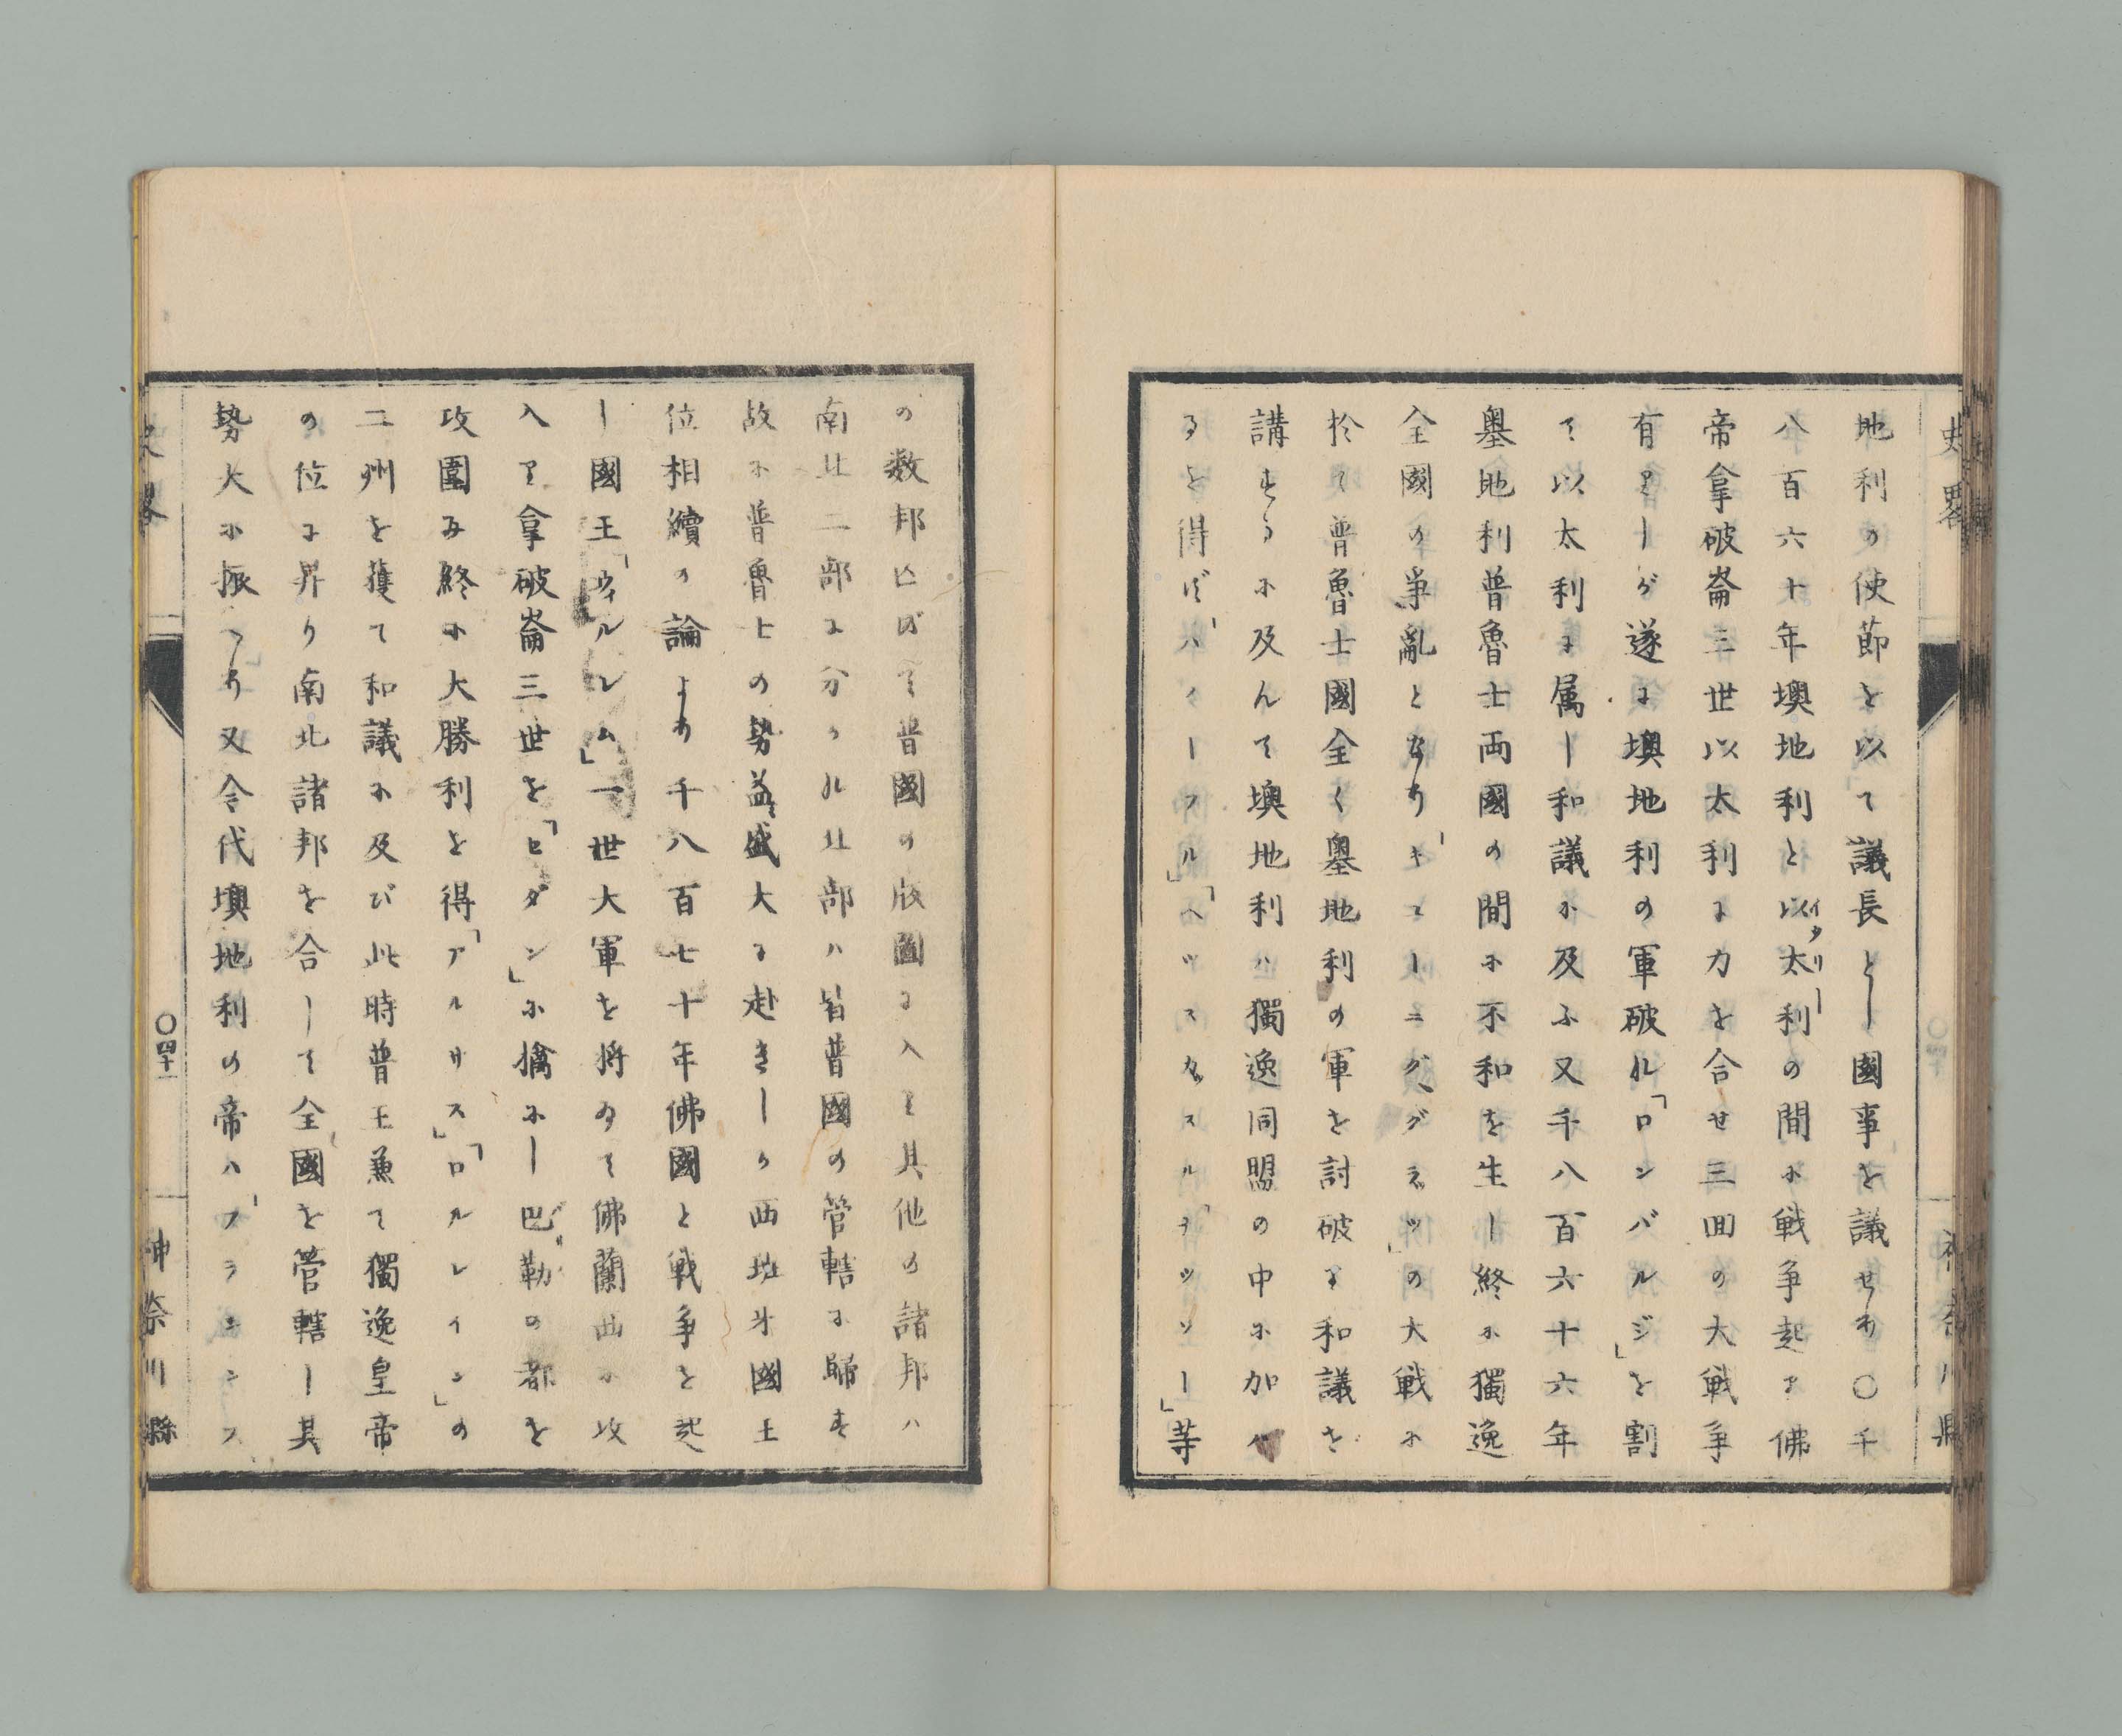 史畧
神奈川縣
地利の使節を以て議長とし國事を議せり〇千
八百六十年墺地利と以太利の間に戦争起り佛
イタリー
帝拿破崙三世以太利に力を合せ三回の大戦争
有りしが遂に墺地利の軍破れ「ロンバルジ」を割
て以太利に属し和議に及ふ又千八百六十六年
墺地利普魯士両國の間に不和を生し終に獨逸
全國の争亂となり「キヨーニグ、グラッツ」の大戦に
於て普魯士國全く墺地利の軍を討破り和議を
講するに及んて墺地利ハ獨逸同盟の中に加ハ
るを得ず「ハノーフル」「ヘッスカッスル」「ナッソー」等
の数邦亡びて普國の版圖に入り其他の諸邦ハ
南北二部に分かれ北部ハ皆普國の管轄に歸す
故に普魯士の勢益盛大に赴きしか西班牙國王
位相續の論より千八百七十年佛國と戦争を起
し國王「ウィルレム」一世大軍を将ゐて佛蘭西に攻
入り拿破崙三世を「セダン」に擒にし巴勒の都を
攻圍み終に大勝利を得「アルサス」「ロルレイン」の
二州を獲て和議に及び此時普王兼て獨逸皇帝
の位に昇り南北諸邦を合して全國を管轄し其
勢大に振へり又今代墺地利の帝ハ「フランシス
史畧
〇四十一
神奈川縣